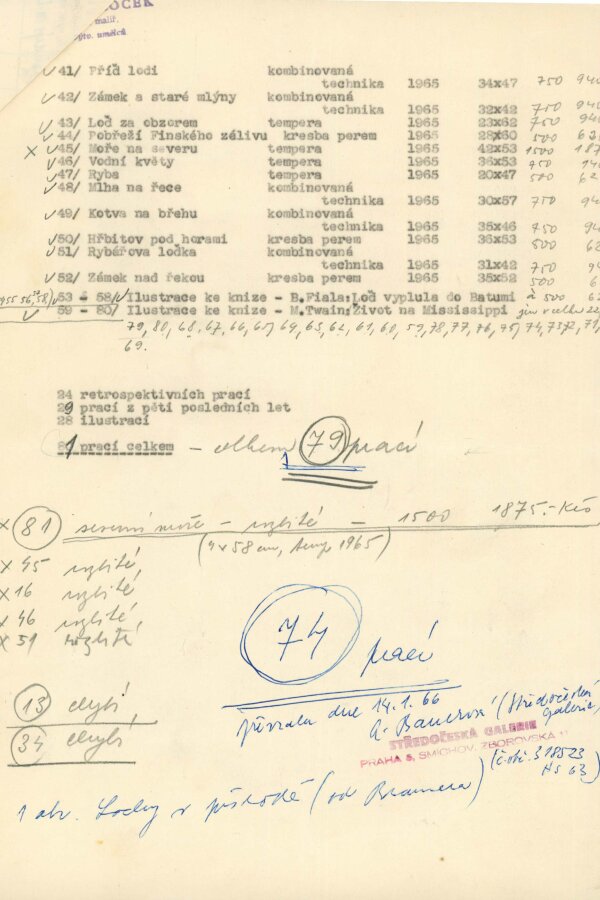 OČEK
malíř,
41/ Příď lodi kombinovaná
technika 1965 34x47 750 940
42/ Zámek a staré mlýny kombinovaná
technika 1965 32x42 750 940
43/ Loď za obzorem tempera 1965 23x62 750 940
44/ Pobřeží Finského zálivu kresba perem 1965 28x60 500 62
x 45/ Moře na severu tempera 1965 42x53 1500 187
46/ Vodní květy tempera 1965 36x53
47/ Ryba tempera 1965 20x47 500 62
48/ Mlha na řece kombinovaná
technika 1965 30x57 750 94
49/ Kotva na břehu kombinovaná
technika 1965 35x46 750 94
50/ Hřbitov pod horami kresba perem 1965 36x53 500 62
51/ Rybářova loďka kombinovaná
technika 1965 31x42 750 94
52/ Zámek nad řekou kresba perem 1965 35x52 500 62
53 - 58/ Ilustrace ke knize - B.Fiala:Loď vyplula do Batumi à 500 62
59 - 80/ Ilustrace ke knize - M.Twain:Život na Mississippi
79, 80, 68, 67, 66, 65, 64, 63, 62, 61, 60, 59, 78, 77, 76, 75, 74, 73, 72, 71,
69.
24 retrospektivních prací
29 prací z pěti posledních let
28 ilustrací
81 prací celkem - celkem 79 prací
x 81 moře - rozbité - 1500 1875.- Kčs
58 cm, temp. 1965)
x 45 rozbité,
x 16 rozbité
x 46 rozbité,
x 51 rozbité
74 prací
13 chybí,
34 chybí
převzala dne 14.1.66
A. Bauerová (Středočeská
galerie,
STŘEDOČESKÁ GALERIE
PRAHA 5, SMÍCHOV, ZBOROVSKÁ 11
(č. obč. 318523
1 obr. Lodky v přístavě (od Bramera)